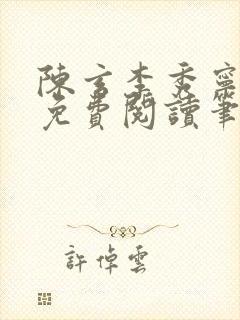 陳玄李秀寧
免費閱讀筆
許倬雲